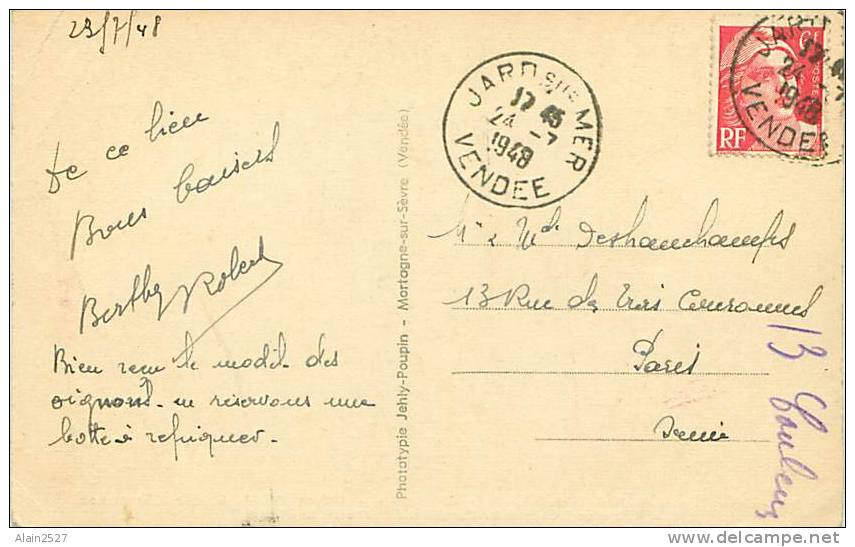 23/7/48
de ce lieu
Bons baisers
Berthe Robert
Bien reçu le modil des
oignons. en réservons une
botte à repiquer.
Phototypie Jehly-Poupin - Mortagne-sur-Sèvre (Vendée)
JARD SUR MER
17 45
24 -7
1948
VENDEE
JARD
17 45
24 -7
1948
VENDEE
POSTES
RF
Mr & Me Deshanchamps
13 Rue des Trois Couronnes
Paris
Seine
13 Couleurs
Alain2527
www.delcampe.net